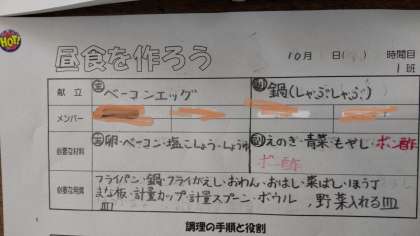 HOT!
昼食を作ろう
10月 日( ) 時間目
1班
献立 主 ベーコンエッグ 副 鍋(しゃぶしゃぶ)
メンバー
必要な材料 主 卵・ベーコン・塩こしょう・しょうゆ 副 えのき・青菜・もやし・ポン酢
ポン酢
必要な用具 フライパン・鍋・フライがえし・おわん・おはし・菜ばし・ほう丁
まな板・計量カップ・計量スプーン・ボウル、野菜入れる皿
皿
調理の手順と役割